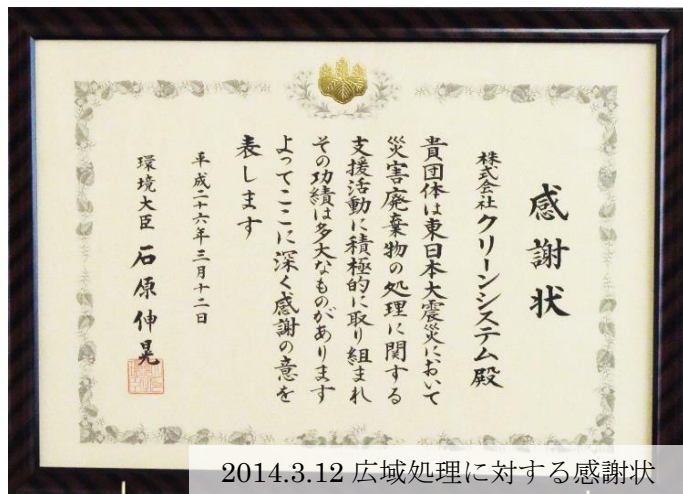 感謝状
株式会社クリーンシステム殿
貴団体は東日本大震災において
災害廃棄物の処理に関する
支援活動に積極的に取り組まれ
その功績は多大なものがあります
よってここに深く感謝の意を
表します
平成二十六年三月十二日
環境大臣 石原伸晃
2014.3.12 広域処理に対する感謝状